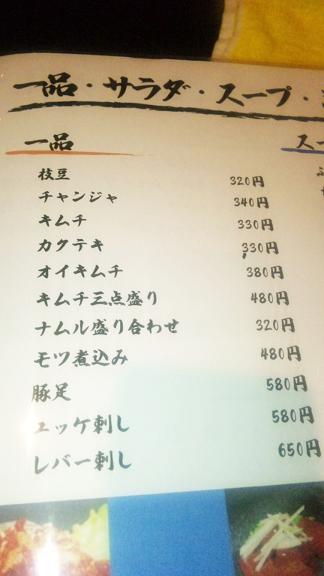 一品・サラダ・スープ・
一品
枝豆 320円
チャンジャ 340円
キムチ 330円
カクテキ 330円
オイキムチ 380円
キムチ三点盛り 480円
ナムル盛り合わせ 320円
モツ煮込み 480円
豚足 580円
ユッケ刺し 580円
レバー刺し 650円
スー